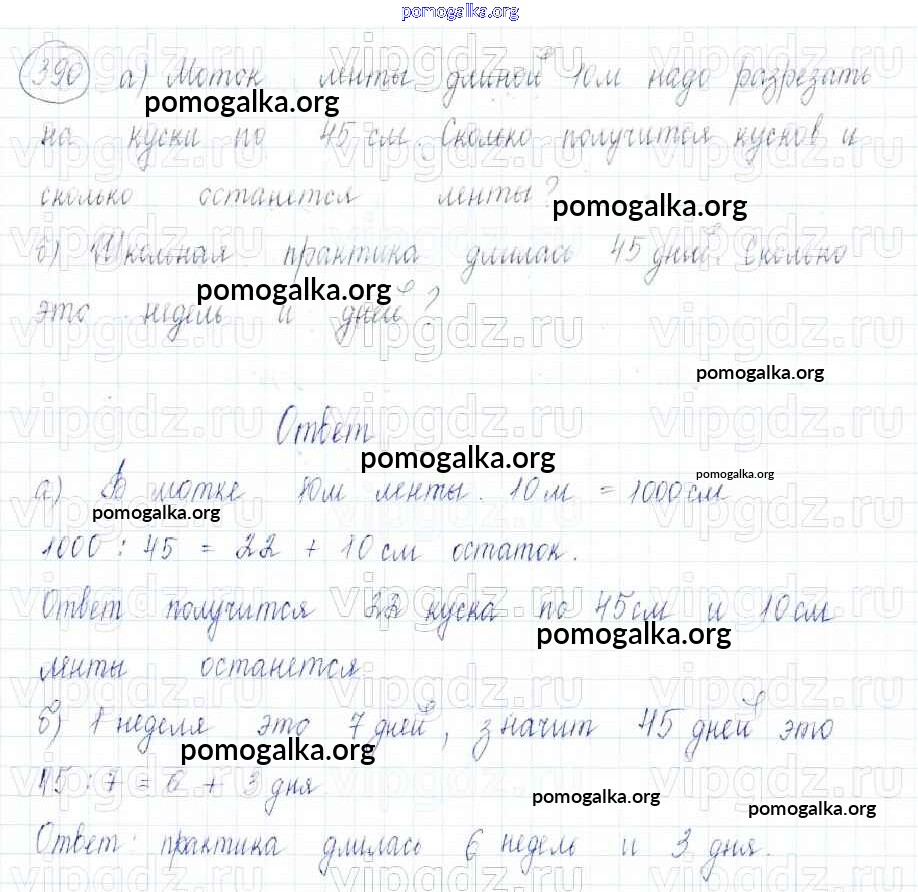 pomogalka.org
390 а) Моток ленты длиной 10м надо разрезать
pomogalka.org
на куски по 45 см. Сколько получится кусков и
сколько останется ленты?
pomogalka.org
б) Школьная практика длилась 45 дней. Сколько
pomogalka.org
это недель и дней?
pomogalka.org
Ответ
pomogalka.org
pomogalka.org
а) В мотке 10м ленты. 10м = 1000см
pomogalka.org
1000 : 45 = 22 + 10 см остаток.
Ответ получится 22 куска по 45см и 10см
pomogalka.org
ленты останется
б) 1 неделя это 7 дней, значит 45 дней это
pomogalka.org
45 : 7 = 6 + 3 дня
pomogalka.org
pomogalka.org
Ответ: практика длилась 6 недель и 3 дня.
vipgdz.ru